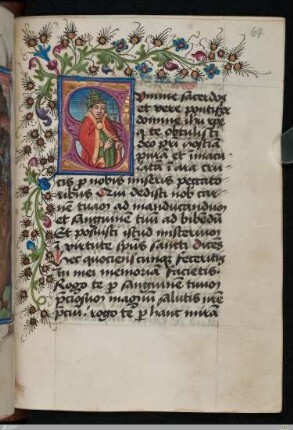 64
Summe sacerdos
et vere pontifex
domine ihu xpe
q te obtulisti
deo pri hostiā
purā et īmacu
latā ī ara cru
cis p nobis miseris peccato
ribus Qui dedisti nob car
nem tuam ad manducandum
et sanguinem tuū ad bibendū
Et posuisti istud misteriū
ī virtute spūs sancti dicēs
Hec quotienscunqz feceritis
in mei memoriā facietis
Rogo te p sanguinem tuum
pciosum magnū salutis nre
pciū . rogo te p hanc mirā